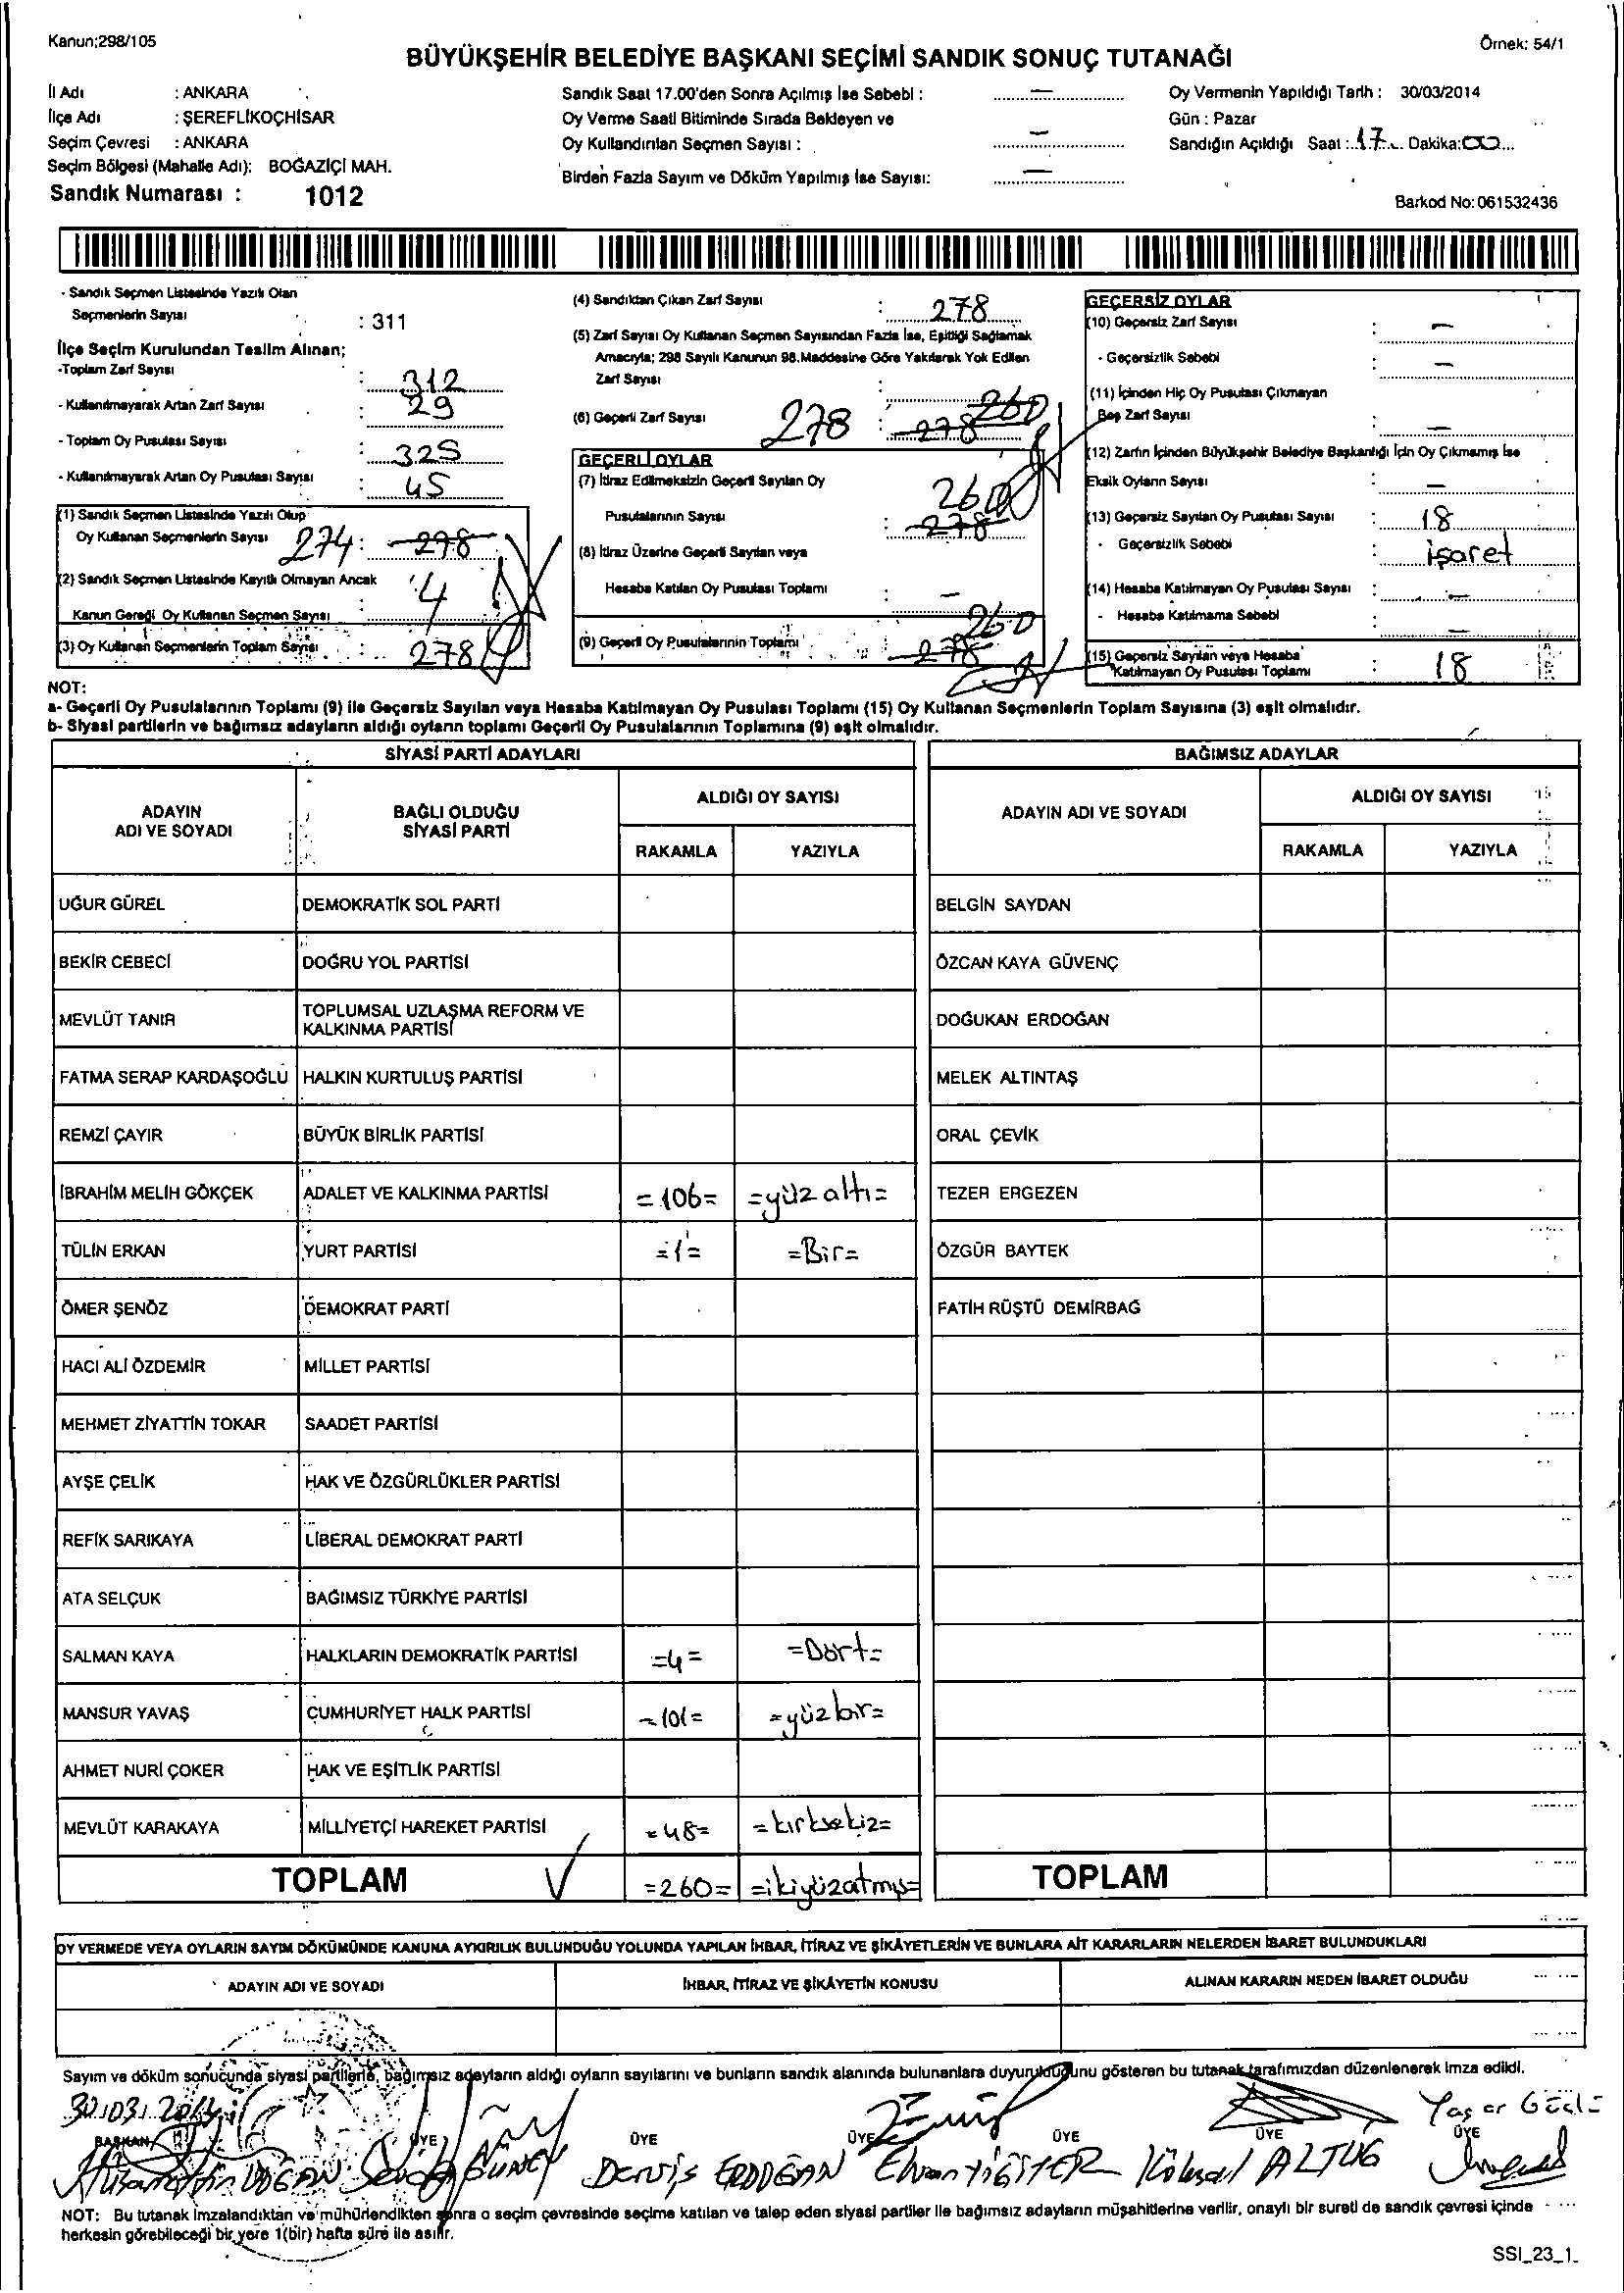 Kanun;298/105
Örnek: 54/1
BÜYÜKŞEHİR BELEDİYE BAŞKANI SEÇİMİ SANDIK SONUÇ TUTANAĞI
İl Adı : ANKARA
İlçe Adı : ŞEREFLİKOÇHİSAR
Seçim Çevresi : ANKARA
Seçim Bölgesi (Mahalle Adı): BOĞAZİÇİ MAH.
Sandık Numarası : 1012
Sandık Saat 17.00'den Sonra Açılmış İse Sebebi : —
Oy Verme Saati Bitiminde Sırada Bekleyen ve
Oy Kullandırılan Seçmen Sayısı : —
Birden Fazla Sayım ve Döküm Yapılmış İse Sayısı: —
Oy Vermenin Yapıldığı Tarih : 30/03/2014
Gün : Pazar
Sandığın Açıldığı Saat : 17 Dakika: 00
Barkod No: 061532436
- Sandık Seçmen Listesinde Yazılı Olan
Seçmenlerin Sayısı : 311
İlçe Seçim Kurulundan Teslim Alınan;
-Toplam Zarf Sayısı : 312
- Kullanılmayarak Artan Zarf Sayısı : 29
- Toplam Oy Pusulası Sayısı : 325
- Kullanılmayarak Artan Oy Pusulası Sayısı : 45
(1) Sandık Seçmen Listesinde Yazılı Olup
Oy Kullanan Seçmenlerin Sayısı 274 : 278
(2) Sandık Seçmen Listesinde Kayıtlı Olmayan Ancak
Kanun Gereği Oy Kullanan Seçmen Sayısı : 4
(3) Oy Kullanan Seçmenlerin Toplam Sayısı : 278
(4) Sandıktan Çıkan Zarf Sayısı : 278
(5) Zarf Sayısı Oy Kullanan Seçmen Sayısından Fazla İse, Eşitliği Sağlamak
Amacıyla; 298 Sayılı Kanunun 98.Maddesine Göre Yakılarak Yok Edilen
Zarf Sayısı :
(6) Geçerli Zarf Sayısı 278 : 278 260
GEÇERLİ OYLAR
(7) İtiraz Edilmeksizin Geçerli Sayılan Oy
Pusulalarının Sayısı : 278 260
(8) İtiraz Üzerine Geçerli Sayılan veya
Hesaba Katılan Oy Pusulası Toplamı : —
(9) Geçerli Oy Pusulalarının Toplamı : 278 260
GEÇERSİZ OYLAR
(10) Geçersiz Zarf Sayısı : —
- Geçersizlik Sebebi : —
(11) İçinden Hiç Oy Pusulası Çıkmayan
Boş Zarf Sayısı : —
(12) Zarfın İçinden Büyükşehir Belediye Başkanlığı İçin Oy Çıkmamış İse
Eksik Oyların Sayısı : —
(13) Geçersiz Sayılan Oy Pusulası Sayısı : 18
- Geçersizlik Sebebi : işaret
(14) Hesaba Katılmayan Oy Pusulası Sayısı : —
- Hesaba Katılmama Sebebi : —
(15) Geçersiz Sayılan veya Hesaba
Katılmayan Oy Pusulası Toplamı : 18
NOT:
a- Geçerli Oy Pusulalarının Toplamı (9) ile Geçersiz Sayılan veya Hesaba Katılmayan Oy Pusulası Toplamı (15) Oy Kullanan Seçmenlerin Toplam Sayısına (3) eşit olmalıdır.
b- Siyasi partilerin ve bağımsız adayların aldığı oyların toplamı Geçerli Oy Pusulalarının Toplamına (9) eşit olmalıdır.
SİYASİ PARTİ ADAYLARI
ADAYIN ADI VE SOYADI BAĞLI OLDUĞU SİYASİ PARTİ ALDIĞI OY SAYISI
RAKAMLA YAZIYLA
UĞUR GÜREL DEMOKRATİK SOL PARTİ
BEKİR CEBECİ DOĞRU YOL PARTİSİ
MEVLÜT TANIR TOPLUMSAL UZLAŞMA REFORM VE
KALKINMA PARTİSİ
FATMA SERAP KARDAŞOĞLU HALKIN KURTULUŞ PARTİSİ
REMZİ ÇAYIR BÜYÜK BİRLİK PARTİSİ
İBRAHİM MELİH GÖKÇEK ADALET VE KALKINMA PARTİSİ =106= =yüz altı=
TÜLİN ERKAN YURT PARTİSİ =1= =Bir=
ÖMER ŞENÖZ DEMOKRAT PARTİ
HACI ALİ ÖZDEMİR MİLLET PARTİSİ
MEHMET ZİYATTİN TOKAR SAADET PARTİSİ
AYŞE ÇELİK HAK VE ÖZGÜRLÜKLER PARTİSİ
REFİK SARIKAYA LİBERAL DEMOKRAT PARTİ
ATA SELÇUK BAĞIMSIZ TÜRKİYE PARTİSİ
SALMAN KAYA HALKLARIN DEMOKRATİK PARTİSİ =4= =Dört=
MANSUR YAVAŞ CUMHURİYET HALK PARTİSİ =101= =yüz bir=
AHMET NURİ ÇOKER HAK VE EŞİTLİK PARTİSİ
MEVLÜT KARAKAYA MİLLİYETÇİ HAREKET PARTİSİ =48= =kırksekiz=
TOPLAM =260= =ikiyüzatmış=
BAĞIMSIZ ADAYLAR
ADAYIN ADI VE SOYADI ALDIĞI OY SAYISI
RAKAMLA YAZIYLA
BELGİN SAYDAN
ÖZCAN KAYA GÜVENÇ
DOĞUKAN ERDOĞAN
MELEK ALTINTAŞ
ORAL ÇEVİK
TEZER ERGEZEN
ÖZGÜR BAYTEK
FATİH RÜŞTÜ DEMİRBAĞ
TOPLAM
OY VERMEDE VEYA OYLARIN SAYIM DÖKÜMÜNDE KANUNA AYKIRILIK BULUNDUĞU YOLUNDA YAPILAN İHBAR, İTİRAZ VE ŞİKÂYETLERİN VE BUNLARA AİT KARARLARIN NELERDEN İBARET BULUNDUKLARI
ADAYIN ADI VE SOYADI İHBAR, İTİRAZ VE ŞİKÂYETİN KONUSU ALINAN KARARIN NEDEN İBARET OLDUĞU
Sayım ve döküm sonucunda siyasi partilerle, bağımsız adayların aldığı oyların sayılarını ve bunların sandık alanında bulunanlara duyurulduğunu gösteren bu tutanak tarafımızdan düzenlenerek imza edildi.
30.03.2014
Yaşar Güçlü
BAŞKAN ÜYE ÜYE ÜYE ÜYE ÜYE ÜYE
DOĞAN GÜNEY Derviş ERDOĞAN Köksal ALTUĞ
NOT: Bu tutanak imzalandıktan ve mühürlendikten sonra o seçim çevresinde seçime katılan ve talep eden siyasi partiler ile bağımsız adayların müşahitlerine verilir, onaylı bir sureti de sandık çevresi içinde
herkesin görebileceği bir yere 1(bir) hafta süre ile asılır.
SSI_23_1_